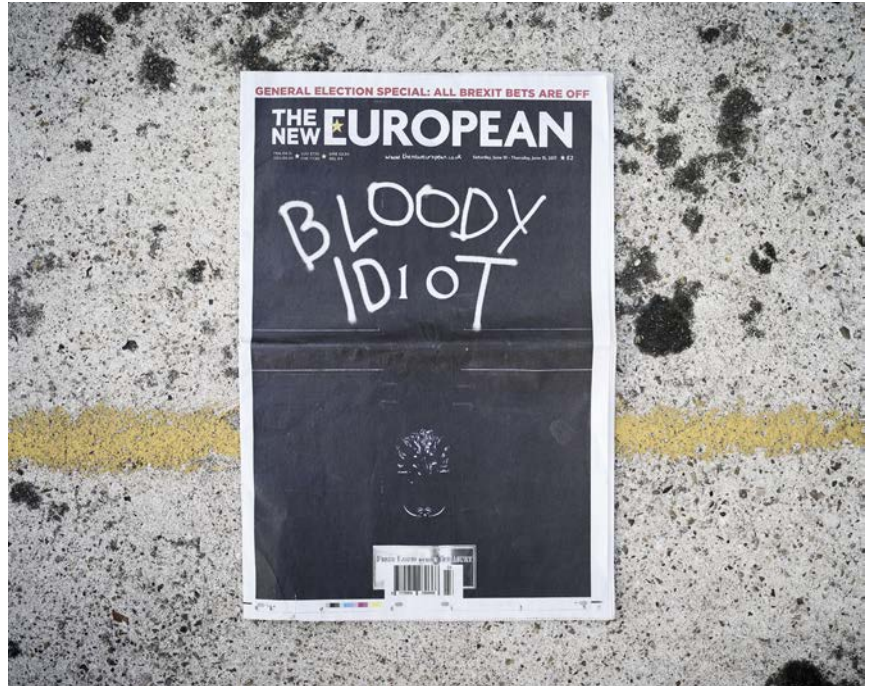 GENERAL ELECTION SPECIAL: ALL BREXIT BETS ARE OFF
THE NEW EUROPEAN
www.theneweuropean.co.uk
Saturday, June 10 - Thursday, June 15, 2017 ★ £2
BLOODY
IDIOT
FIRST LORD OF THE TREASURY